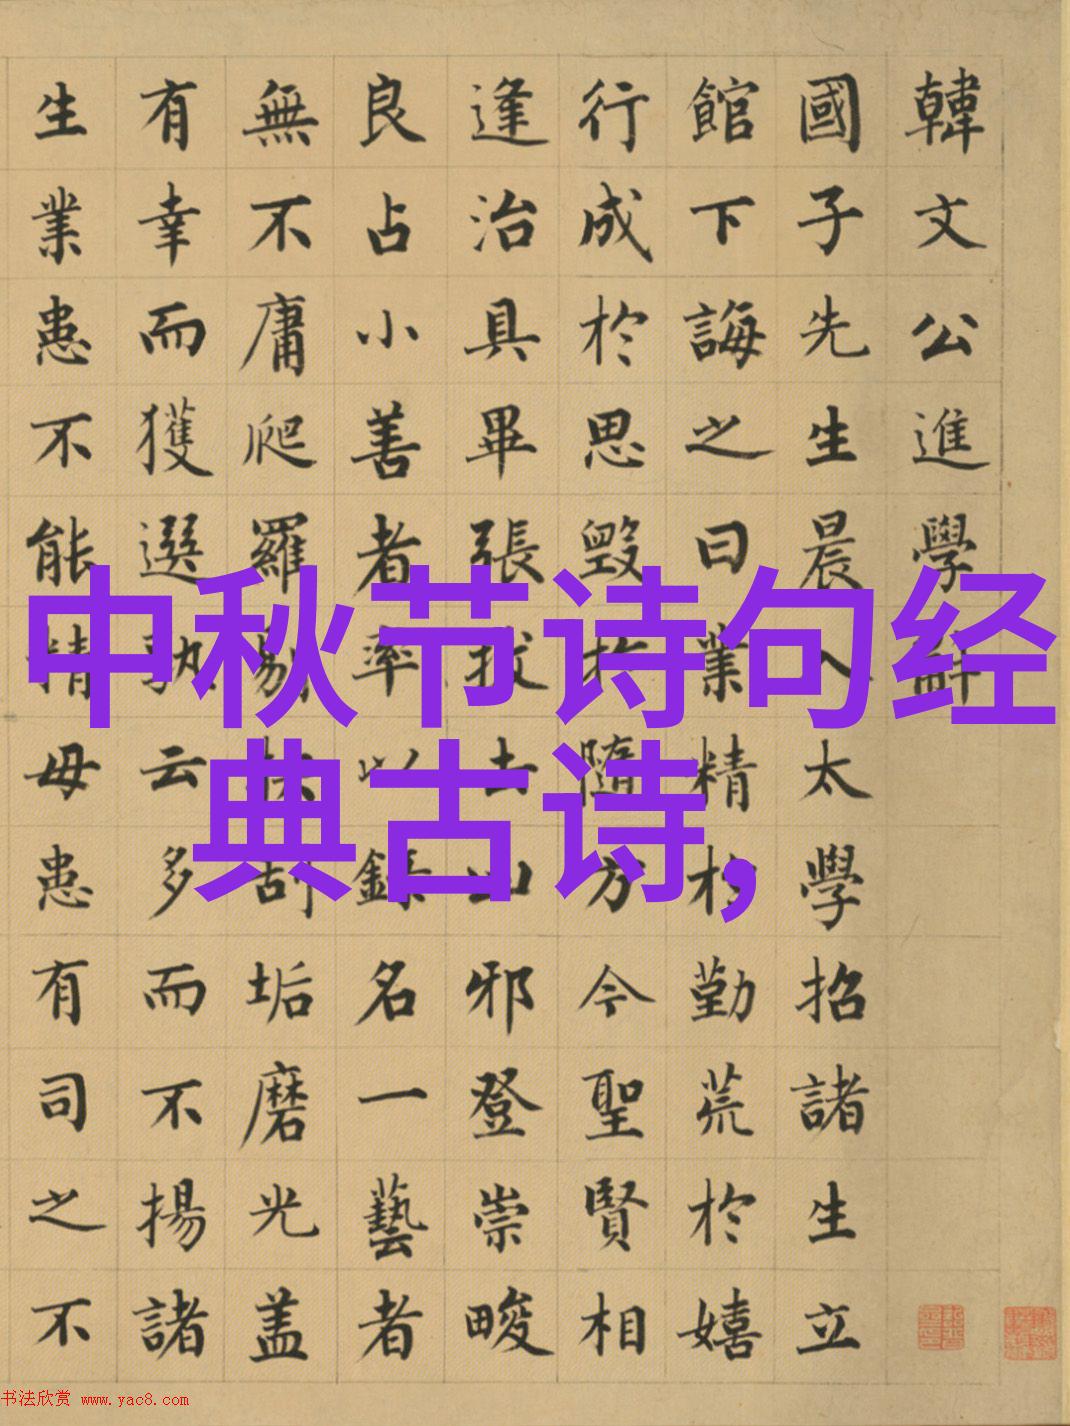 韓文公進學解
國子先生晨入太學招諸生立
館下誨之曰業精於勤荒於嬉
行成於思毀於隨方今聖賢相
逢治具畢張拔去凶邪登崇畯
良占小善者率以錄名一藝者
無不庸爬羅剔抉刮垢磨光盖
有幸而獲選孰云多而不揚諸
生業患不能精母患有司之不
中秋节诗句经
典古诗,
书法欣赏 www.yac8.com